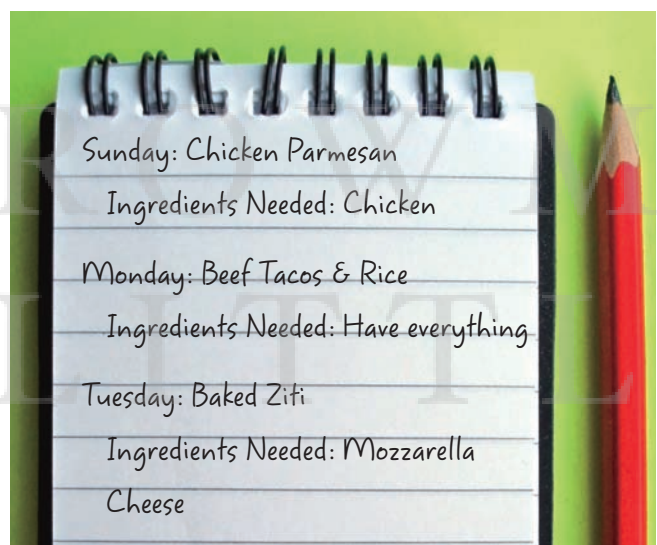 Sunday: Chicken Parmesan
Ingredients Needed: Chicken
Monday: Beef Tacos & Rice
Ingredients Needed: Have everything
Tuesday: Baked Ziti
Ingredients Needed: Mozzarella
Cheese